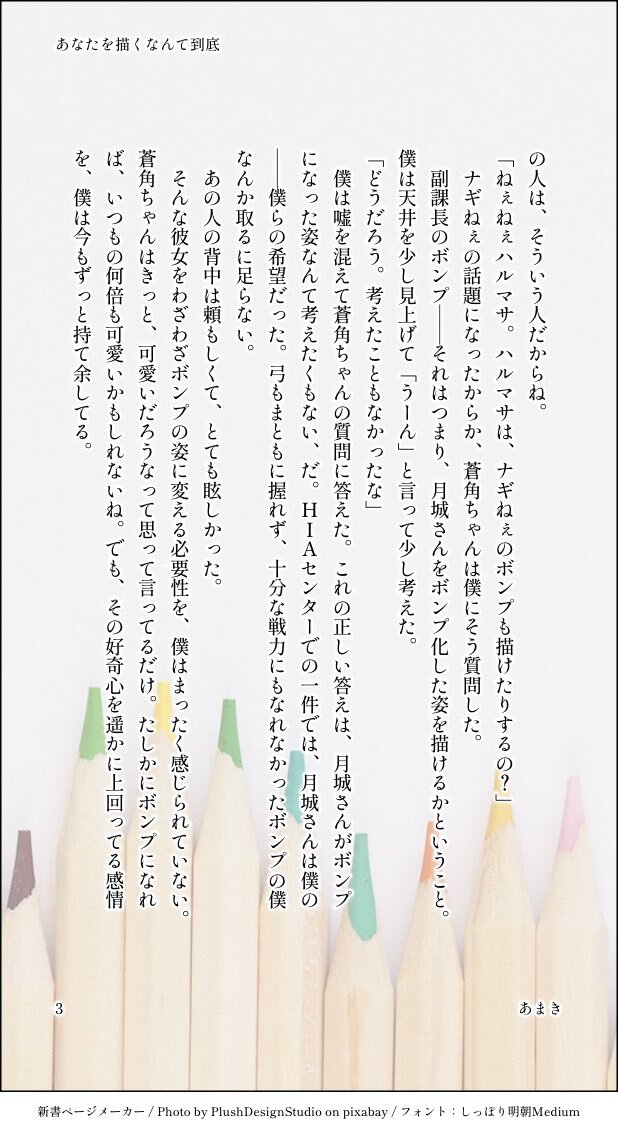 あなたを描くなんて到底
の人は、そういう人だからね。
「ねぇねぇハルマサ。ハルマサは、ナギねぇのボンプも描けたりするの？」
ナギねぇの話題になったからか、蒼角ちゃんは僕にそう質問した。
副課長のボンプ――それはつまり、月城さんをボンプ化した姿を描けるかということ。
僕は天井を少し見上げて「うーん」と言って少し考えた。
「どうだろう。考えたこともなかったな」
僕は嘘を混えて蒼角ちゃんの質問に答えた。これの正しい答えは、月城さんがボンプ
になった姿なんて考えたくもない、だ。ＨＩＡセンターでの一件では、月城さんは僕の
――僕らの希望だった。弓もまともに握れず、十分な戦力にもなれなかったボンプの僕
なんか取るに足らない。
あの人の背中は頼もしくて、とても眩しかった。
そんな彼女をわざわざボンプの姿に変える必要性を、僕はまったく感じられていない。
蒼角ちゃんはきっと、可愛いだろうなって思って言ってるだけ。たしかにボンプになれ
ば、いつもの何倍も可愛いかもしれないね。でも、その好奇心を遥かに上回ってる感情
を、僕は今もずっと持て余してる。
3
あまき
新書ページメーカー / Photo by PlushDesignStudio on pixabay / フォント：しっぽり明朝Medium